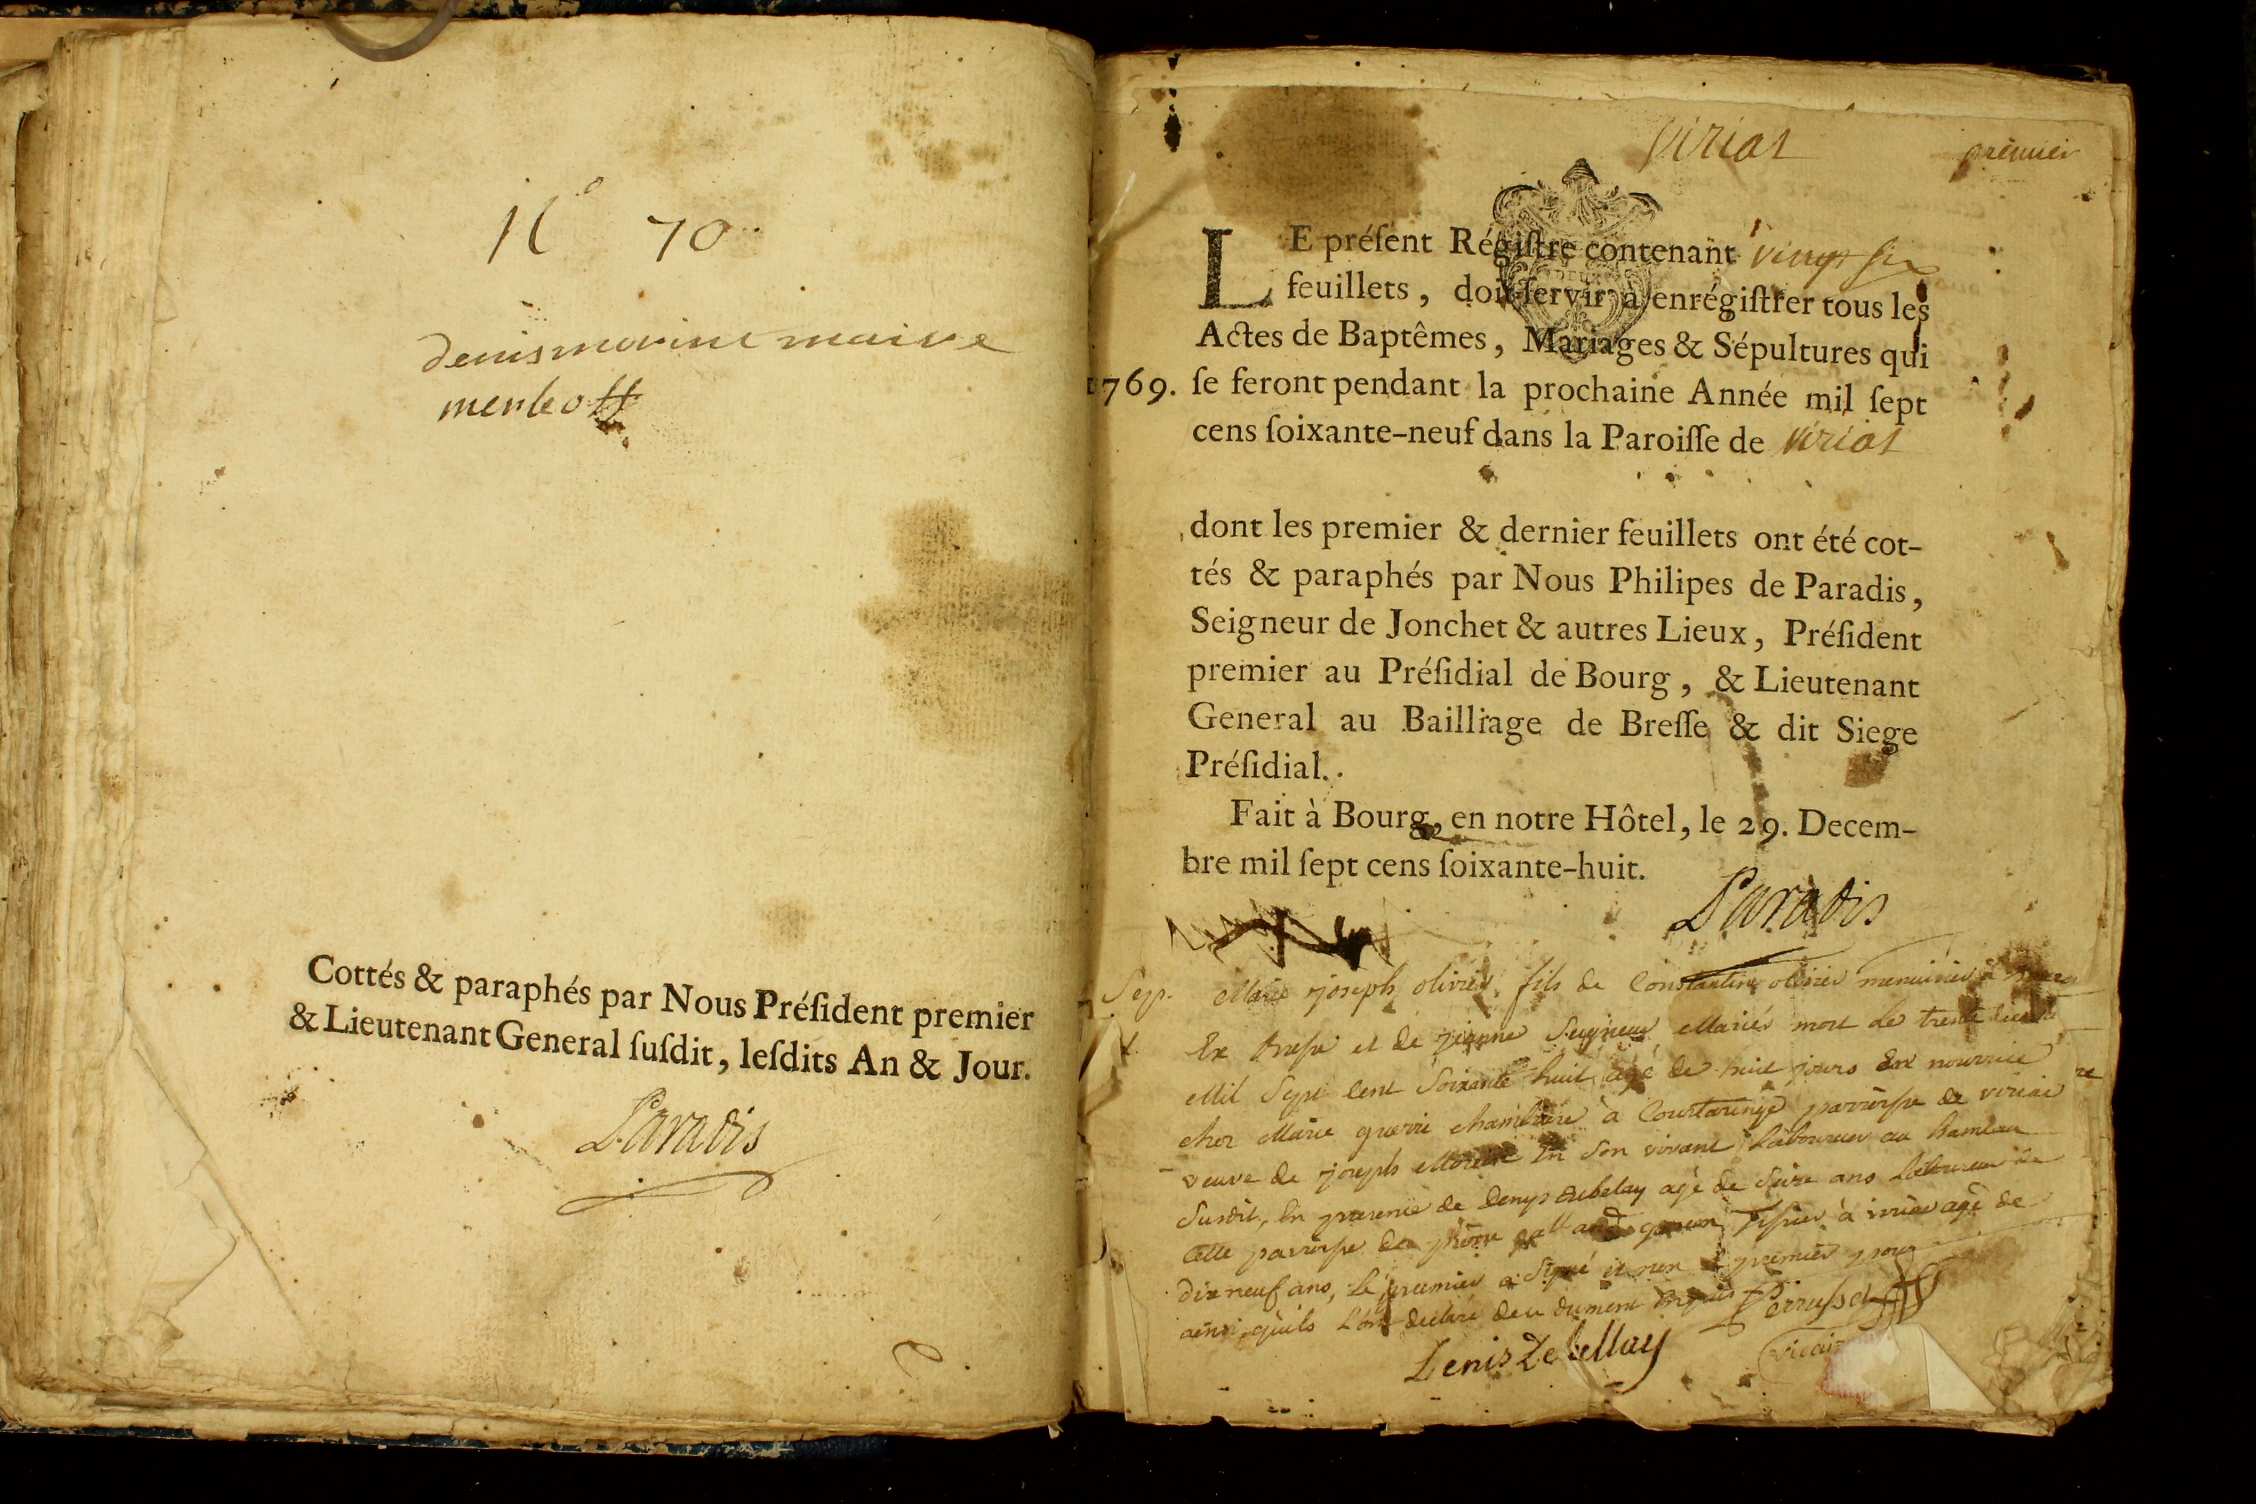 N° 70
denis morine maire
Cottés & paraphés par Nous Préſident premier
& Lieutenant General ſuſdit, leſdits An & Jour.
Paradis
Viriat
premier
LE préſent Régiſtre contenant vingt six
feuillets, doit ſervir à enrégiſtrer tous les
Actes de Baptêmes, Mariages & Sépultures qui
1769. ſe feront pendant la prochaine Année mil ſept
cens ſoixante-neuf dans la Paroiſſe de Viriat
dont les premier & dernier feuillets ont été cot-
tés & paraphés par Nous Philipes de Paradis,
Seigneur de Jonchet & autres Lieux, Préſident
premier au Préſidial de Bourg, & Lieutenant
General au Bailliage de Breſſe & dit Siege
Préſidial.
Fait à Bourg, en notre Hôtel, le 29. Decem-
bre mil ſept cens ſoixante-huit.
Paradis
Sep. Marie joseph olivier fils de Constantin olivier menuisier à
En Bresse et de jeanne Seigneur Mariés mort le trente
Mil Sept Cent Soixante huit agé de huit jours En nourrice
chez Marie chambard à parroisse de viriat
veuve de joseph En Son vivant Laboureur au hameau
Susdit, En presence de Denys agé de Seize ans Laboureur
Cette parroisse Et à agé de
dix neuf ans, Le premier a Signé et non pour
ainsi qu'ils L'ont declaré de ce dument Enquis Perrusset
Denis Debellay
vicaire